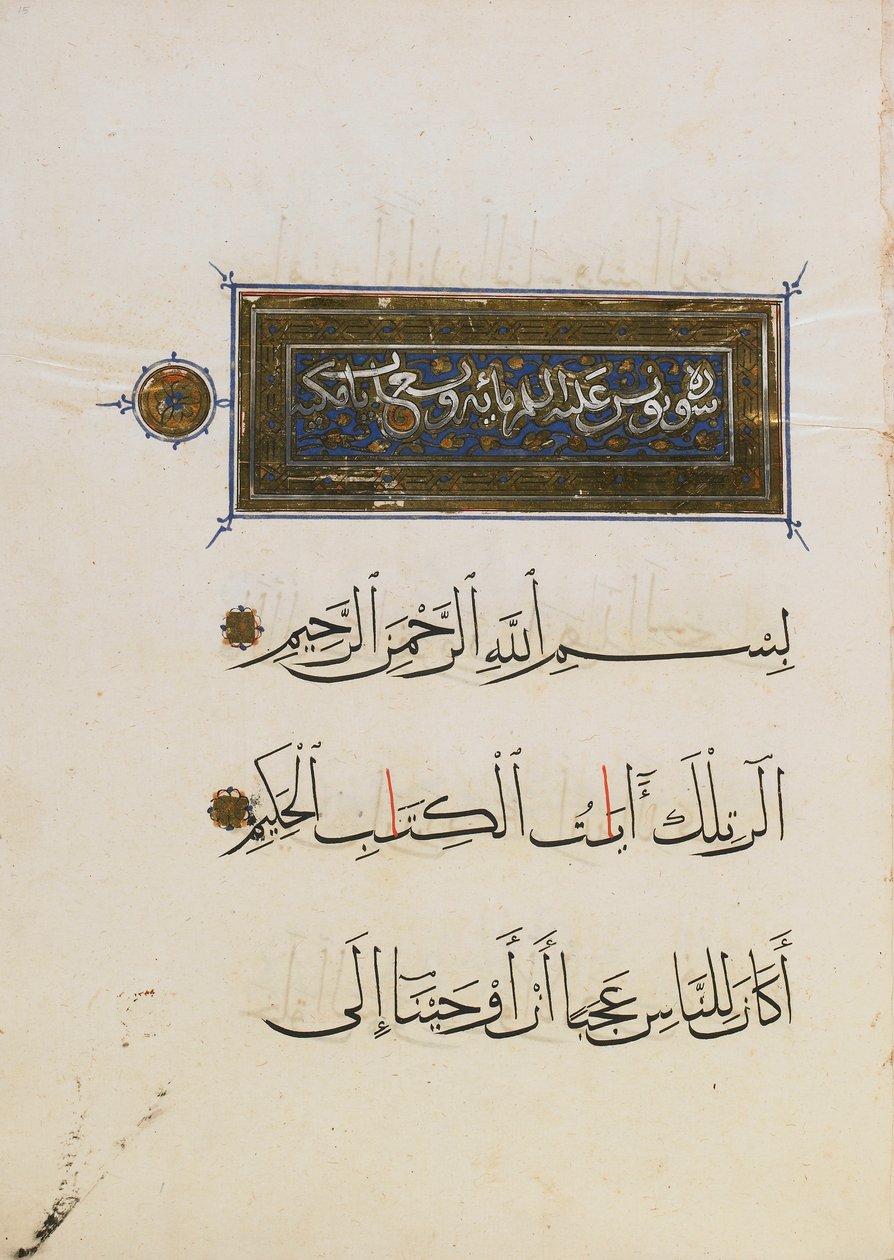 سورة يونس عليه السلم مائة وتسع آيات مكية
بِسْمِ ٱللَّهِ ٱلرَّحْمَٰنِ ٱلرَّحِيمِ
الٓر تِلْكَ ءَايَاتُ ٱلْكِتَابِ ٱلْحَكِيمِ
أَكَانَ لِلنَّاسِ عَجَبًا أَنْ أَوْحَيْنَآ إِلَى